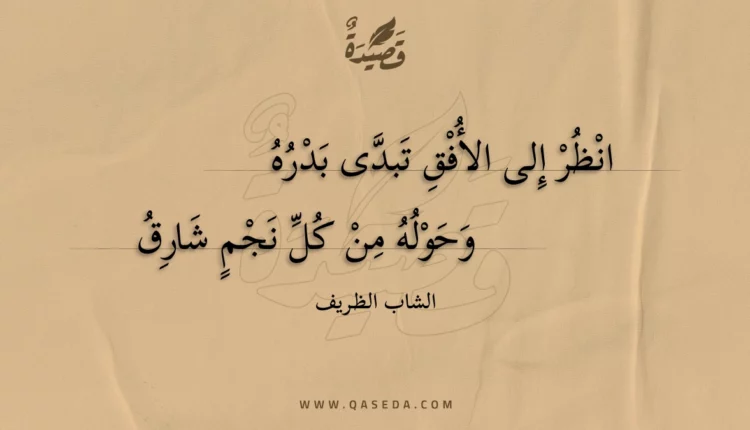 قَصِيْدَةٌ
انْظُرْ إِلى الأُفْقِ تَبدَّى بَدْرُهُ
وَحَوْلُهُ مِنْ كُلِّ نَجْمٍ شَارِقُ
الشاب الظريف
WWW.QASEDA.COM